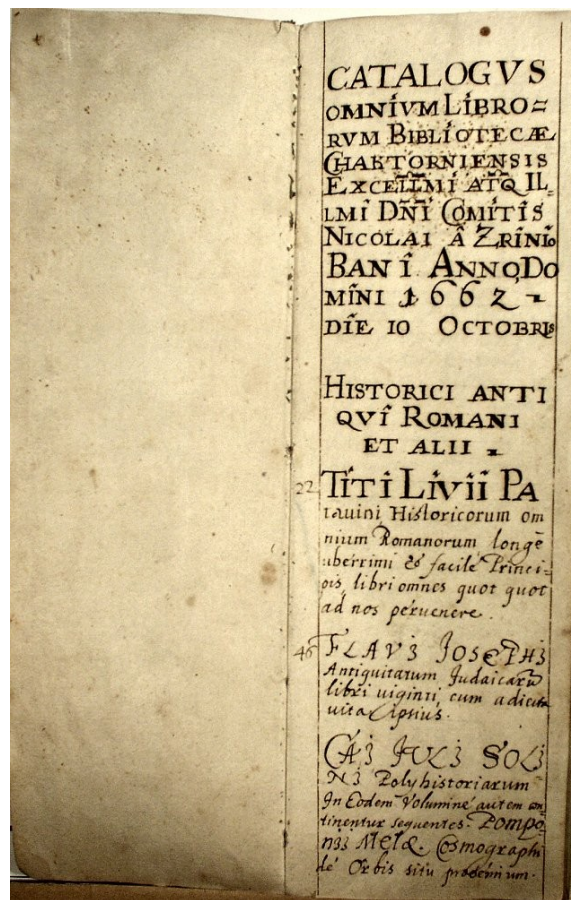 CATALOGVS
OMNIVM LIBRO=
RVM BIBLIOTECÆ
CHAKTORNIENSIS
EXCELLMI ATQ IL=
LMI DÑI COMITIS
NICOLAI Â ZRINIO
BANI ANNO DO
MINI 1662
DIE 10 OCTOBRIS
HISTORICI ANTI
QVI ROMANI
ET ALII
22 TITI LIVII PA
tauini Historicorum om
nium Romanorum longe
uberrimi & facile Princi=
pis, libri omnes quot quot
ad nos peruenere.
46 FLAVJ JOSEPHJ
Antiquitatum Judaicarū
libri uiginti, cum adiecta
uita ipsius.
CAJ JULJ SOLJ
NJ Polyhistoriarum
In Eodem Volumine autem con
tinentur sequentes. Pompo
nij Melæ. Cosmographi
de Orbis situ proemium.